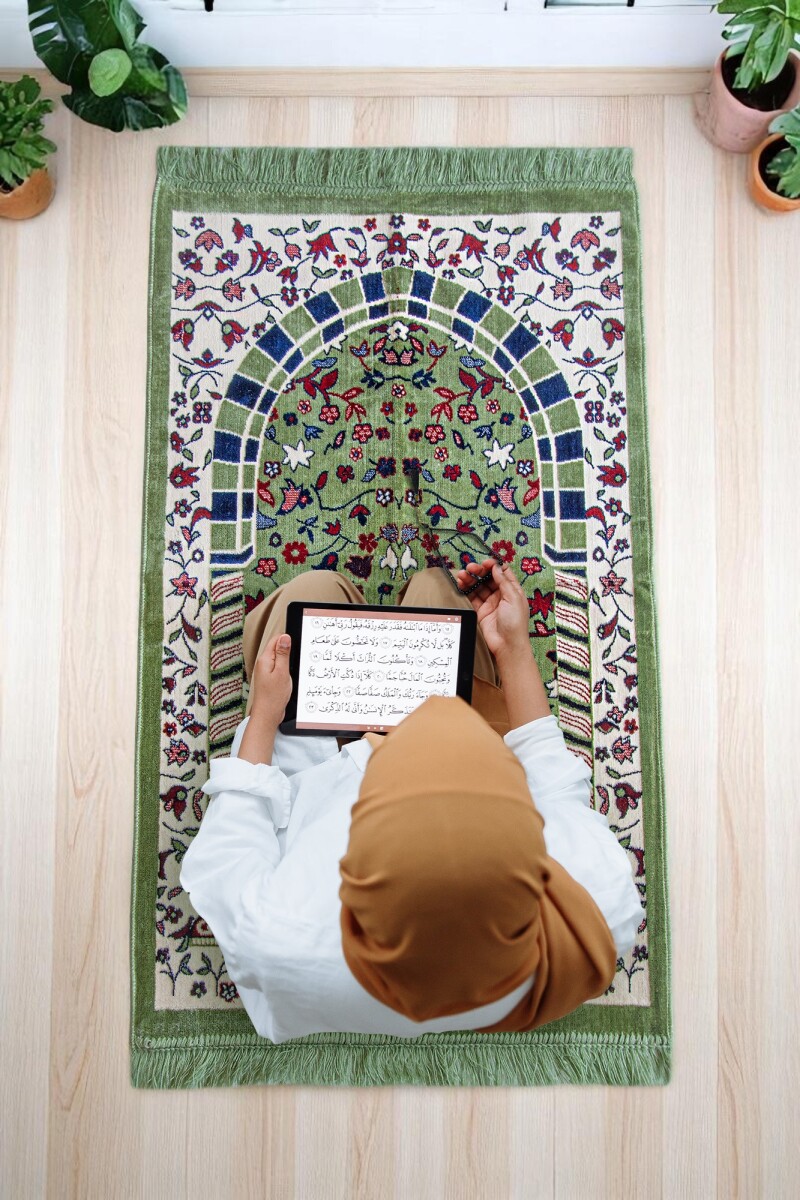 وَأَمَّآ إِذَا مَا ٱبْتَلَىٰهُ فَقَدَرَ عَلَيْهِ رِزْقَهُۥ فَيَقُولُ رَبِّىٓ أَهَٰنَنِ ١٦
كَلَّا بَل لَّا تُكْرِمُونَ ٱلْيَتِيمَ ١٧ وَلَا تَحَٰٓضُّونَ عَلَىٰ طَعَامِ
ٱلْمِسْكِينِ ١٨ وَتَأْكُلُونَ ٱلتُّرَاثَ أَكْلًا لَّمًّا ١٩
وَتُحِبُّونَ ٱلْمَالَ حُبًّا جَمًّا ٢٠ كَلَّآ إِذَا دُكَّتِ ٱلْأَرْضُ دَكًّا
وَجَآءَ رَبُّكَ وَٱلْمَلَكُ صَفًّا صَفًّا ٢٢ وَجِا۟ىٓءَ يَوْمَئِذٍۭ
يَتَذَكَّرُ ٱلْإِنسَٰنُ وَأَنَّىٰ لَهُ ٱلذِّكْرَىٰ ٢٣